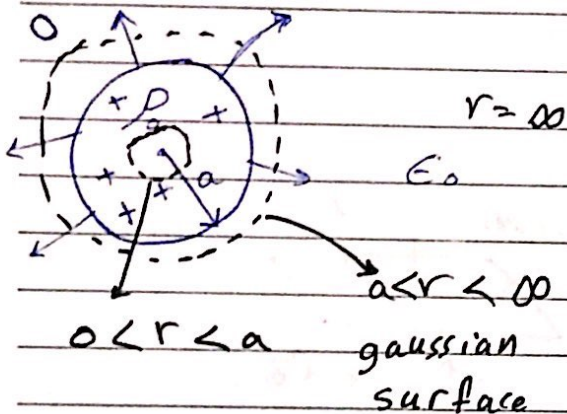 0
+ ρ +
r = ∞
a
ϵ₀
+ + +
a < r < ∞
0 < r < a
gaussian
surface